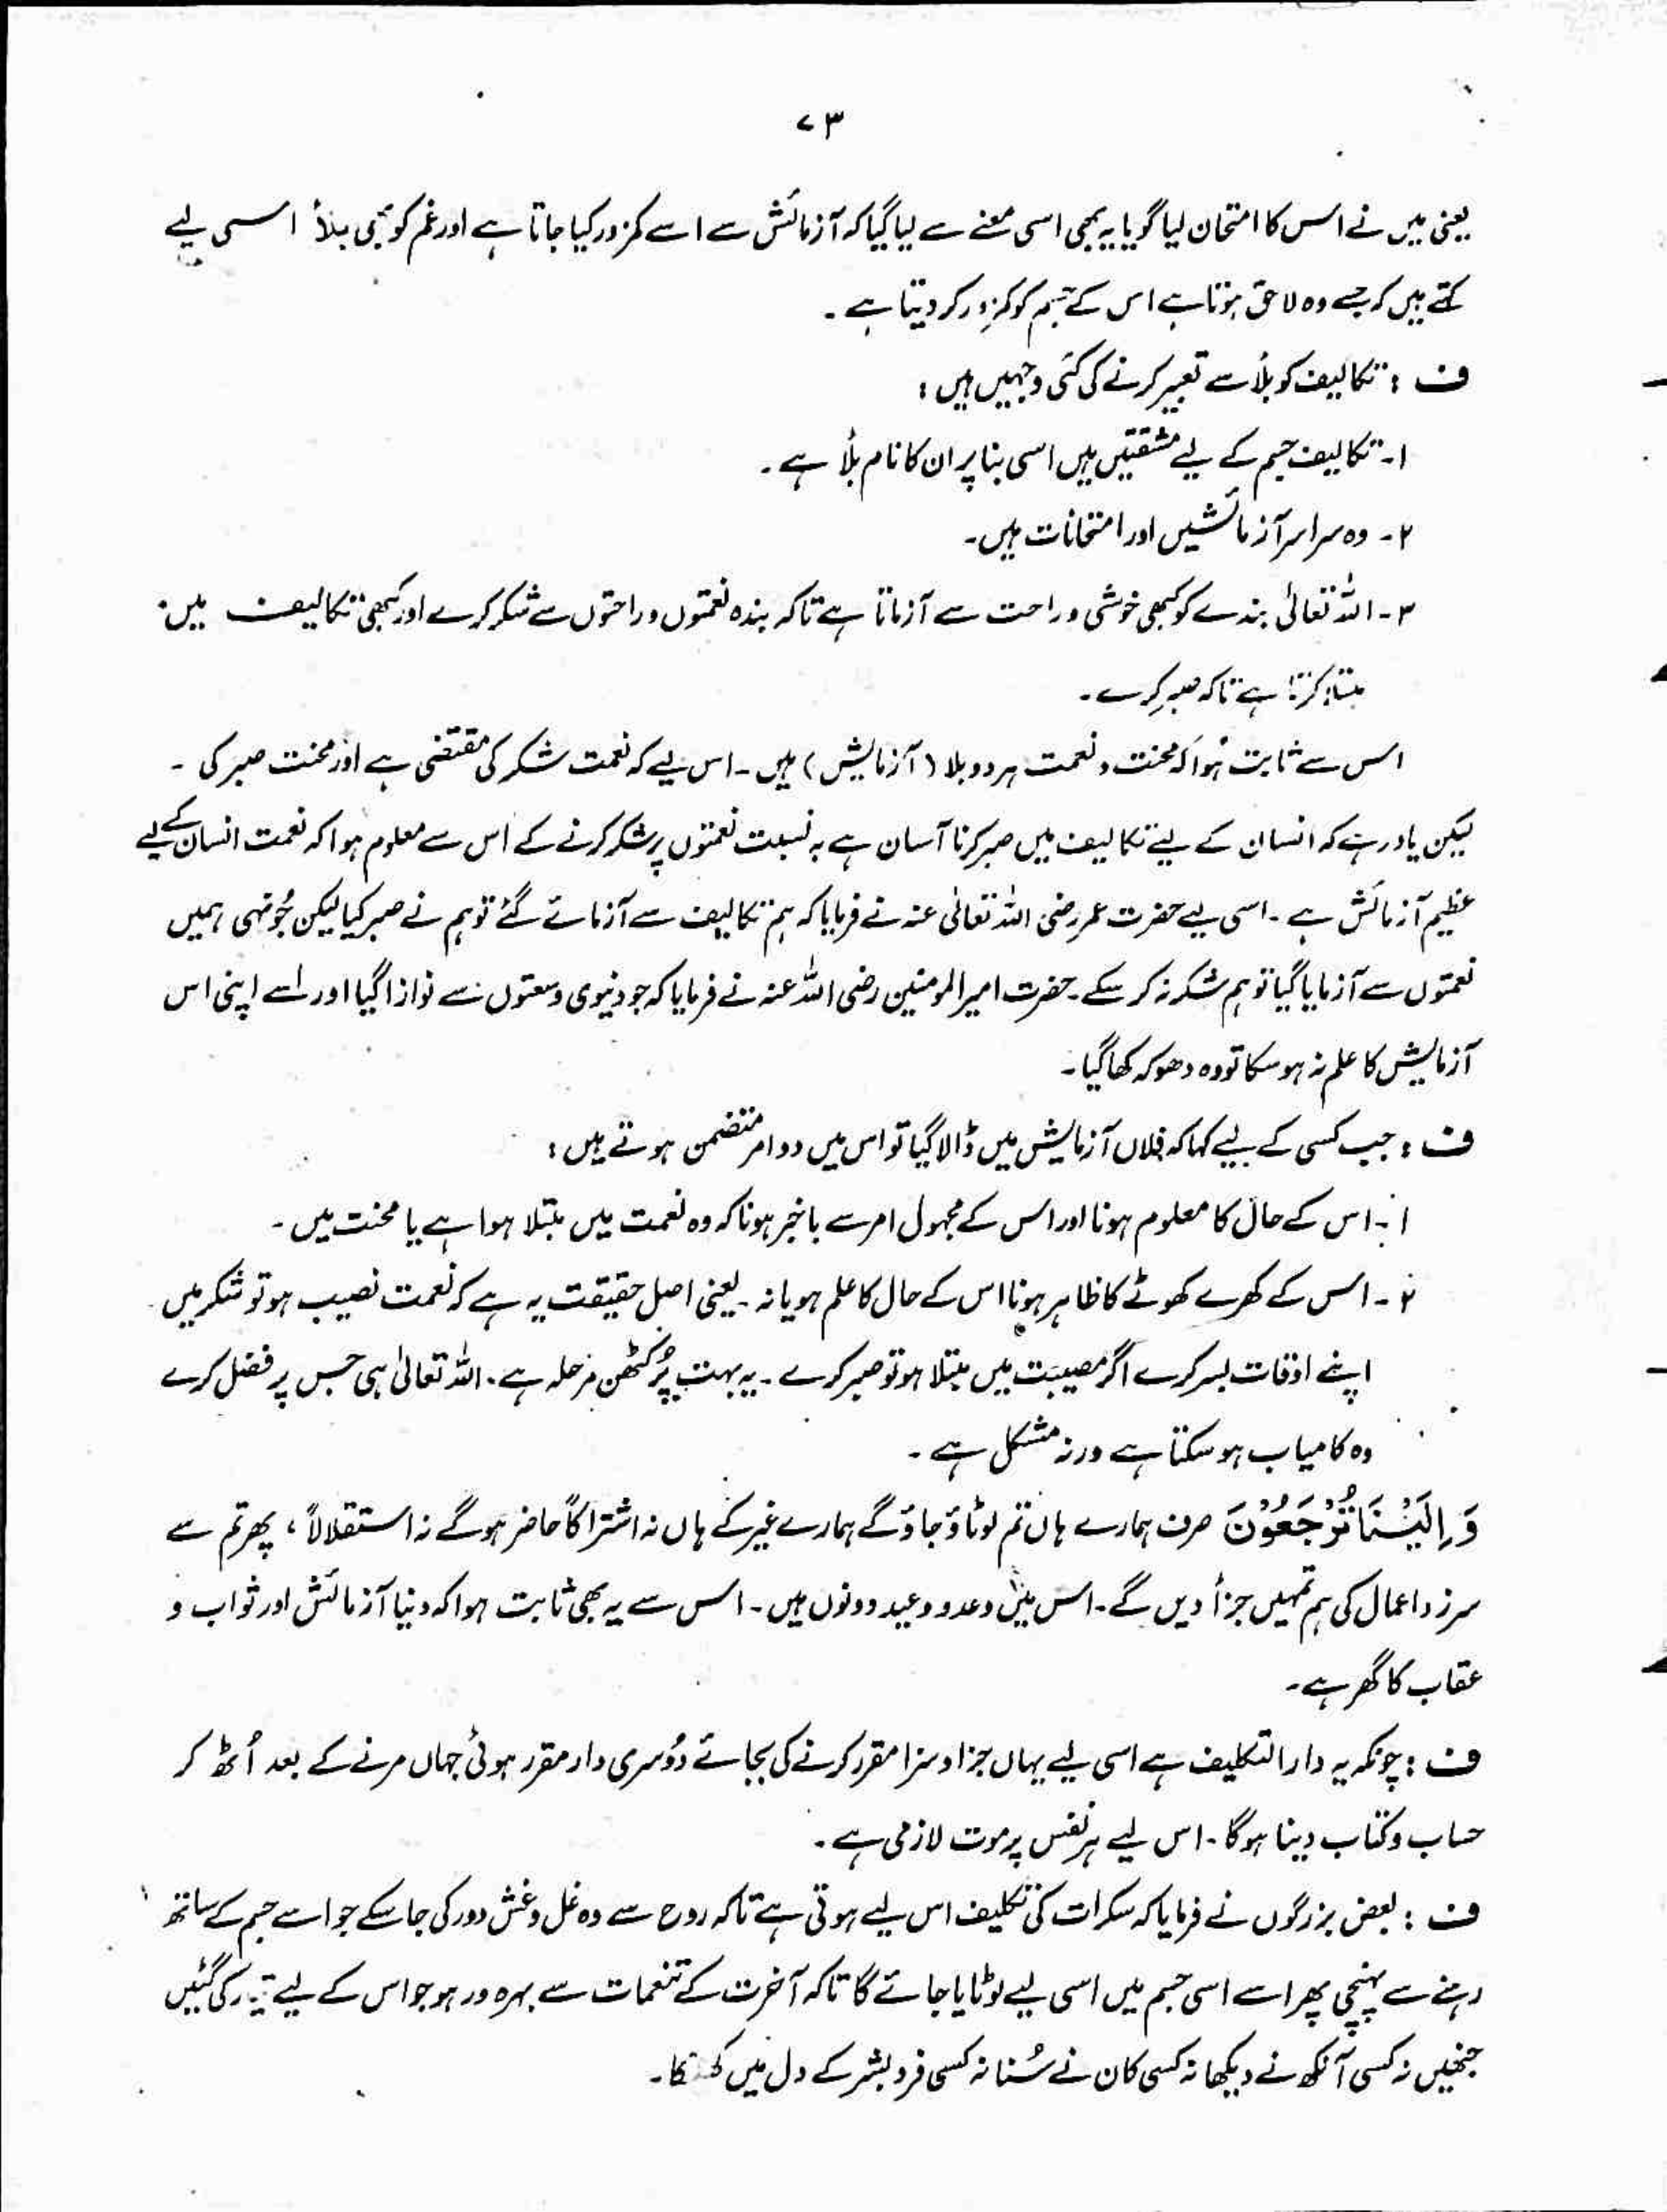 ۷۳
یعنی میں نے اس کا امتحان لیا گویا یہ بھی اسی معنے سے لیا گیا کہ آزمائش سے اسے کمزور کیا جاتا ہے اور غم کو بھی بلأ اسی لیے
کہتے ہیں کہ جسے وہ لاحق ہوتا ہے اس کے جسم کو کمزور کر دیتا ہے۔
ف : تکالیف کو بلأ سے تعبیر کرنے کی کئی وجہیں ہیں :
۱۔ تکالیف جسم کے لیے مشقتیں ہیں اسی بنا پر ان کا نام بلأ ہے۔
۲۔ وہ سراسر آزمائشیں اور امتحانات ہیں۔
۳۔ اللہ تعالیٰ بندے کو کبھی خوشی و راحت سے آزماتا ہے تاکہ بندہ نعمتوں و راحتوں سے شکر کرے اور کبھی تکالیف میں
مبتلا کرتا ہے تاکہ صبر کرے۔
اس سے ثابت ہُوا کہ محنت و نعمت ہر دو بلا (آزمایش) ہیں۔ اس لیے کہ نعمت شکر کی مقتضی ہے اور محنت صبر کی۔
لیکن یاد رہے کہ انسان کے لیے تکالیف میں صبر کرنا آسان ہے بہ نسبت نعمتوں پر شکر کرنے کے اس سے معلوم ہوا کہ نعمت انسان کے لیے
عظیم آزمائش ہے۔ اسی لیے حضرت عمر رضی اللہ تعالیٰ عنہ نے فرمایا کہ ہم تکالیف سے آزمائے گئے تو ہم نے صبر کیا لیکن جُونہی ہمیں
نعمتوں سے آزمایا گیا تو ہم شکر نہ کر سکے۔ حضرت امیر المومنین رضی اللہ عنہ نے فرمایا کہ جو دنیوی وسعتوں سے نوازا گیا اور اسے اپنی اس
آزمایش کا علم نہ ہو سکا تو وہ دھوکہ کھا گیا۔
ف : جب کسی کے لیے کہا کہ فلاں آزمایش میں ڈالا گیا تو اس میں دو امر متضمن ہوتے ہیں :
۱۔ اس کے حال کا معلوم ہونا اور اس کے مجہول امر سے باخبر ہونا کہ وہ نعمت میں مبتلا ہوا ہے یا محنت میں۔
۲۔ اس کے کھرے کھوٹے کا ظاہر ہونا اس کے حال کا علم ہو یا نہ۔ یعنی اصل حقیقت یہ ہے کہ نعمت نصیب ہو تو شکر میں
اپنے اوقات بسر کرے اگر مصیبت میں مبتلا ہو تو صبر کرے۔ یہ بہت پُر کٹھن مرحلہ ہے۔ اللہ تعالیٰ ہی جس پر فضل کرے
وہ کامیاب ہو سکتا ہے ورنہ مشکل ہے۔
وَ اِلَیْنَا تُرْجَعُوْنَ صرف ہمارے ہاں تم لوٹائے جاؤ گے ہمارے غیر کے ہاں نہ اشتراکاً حاضر ہو گے نہ استقلالاً، پھر تم سے
سرزد اعمال کی ہم تمہیں جزأ دیں گے۔ اس میں وعدو وعید دونوں ہیں۔ اس سے یہ بھی ثابت ہوا کہ دنیا آزمائش اور ثواب و
عقاب کا گھر ہے۔
ف : چونکہ یہ دار التکلیف ہے اسی لیے یہاں جزا و سزا مقرر کرنے کی بجائے دُوسری دار مقرر ہوئی جہاں مرنے کے بعد اُٹھ کر
حساب و کتاب دینا ہوگا۔ اس لیے ہر نفس پر موت لازمی ہے۔
ف : بعض بزرگوں نے فرمایا کہ سکرات کی تکلیف اس لیے ہوتی ہے تاکہ روح سے وہ غل و غش دور کی جا سکے جو اسے جسم کے ساتھ
رہنے سے پہنچی پھر اسے اسی جسم میں اسی لیے لوٹایا جائے گا تاکہ آخرت کے تنعمات سے بہرہ ور ہو جو اس کے لیے تیار کی گئیں
جنھیں نہ کسی آنکھ نے دیکھا نہ کسی کان نے سُنا نہ کسی فرد بشر کے دل میں کھٹکا۔